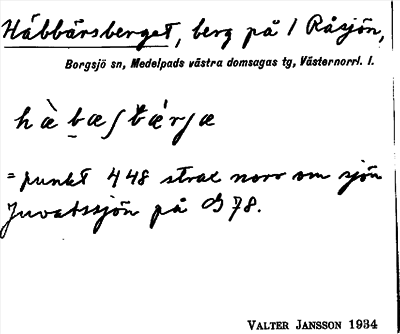 Häbbärsberget, berg på 1 Råsjön,
Borgsjö sn, Medelpads västra domsagas tg, Västernorrl. l.
= punkt 448 strax norr om sjön
Juvatssjön på G 78.
VALTER JANSSON 1934